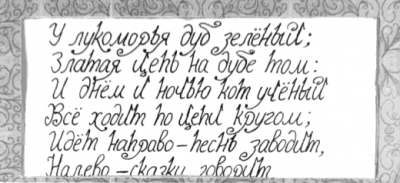 У лукоморья дуб зелёный;
Златая цепь на дубе том:
И днём и ночью кот учёный
Всё ходит по цепи кругом;
Идёт направо – песнь заводит,
Налево – сказки говорит